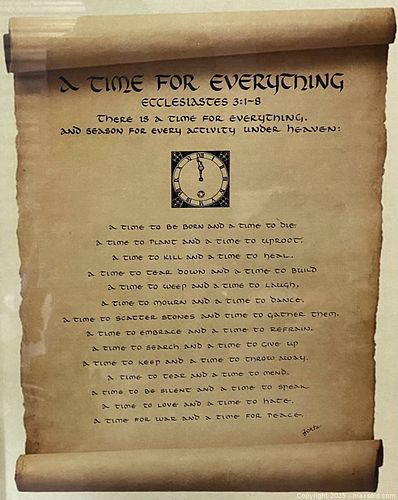 A TIME FOR EVERYTHING
ECCLESIASTES 3:1-8
THERE IS A TIME FOR EVERYTHING,
AND SEASON FOR EVERY ACTIVITY UNDER HEAVEN:
A TIME TO BE BORN AND A TIME TO DIE
A TIME TO PLANT AND A TIME TO UPROOT.
A TIME TO KILL AND A TIME TO HEAL.
A TIME TO TEAR DOWN AND A TIME TO BUILD
A TIME TO WEEP AND A TIME TO LAUGH,
A TIME TO MOURN AND A TIME TO DANCE.
A TIME TO SCATTER STONES AND A TIME TO GATHER THEM.
A TIME TO EMBRACE AND A TIME TO REFRAIN.
A TIME TO SEARCH AND A TIME TO GIVE UP
A TIME TO KEEP AND A TIME TO THROW AWAY.
A TIME TO TEAR AND A TIME TO MEND.
A TIME TO BE SILENT AND A TIME TO SPEAK
A TIME TO LOVE AND A TIME TO HATE.
A TIME FOR WAR AND A TIME FOR PEACE.
Copyright 2025 - maxsold.com